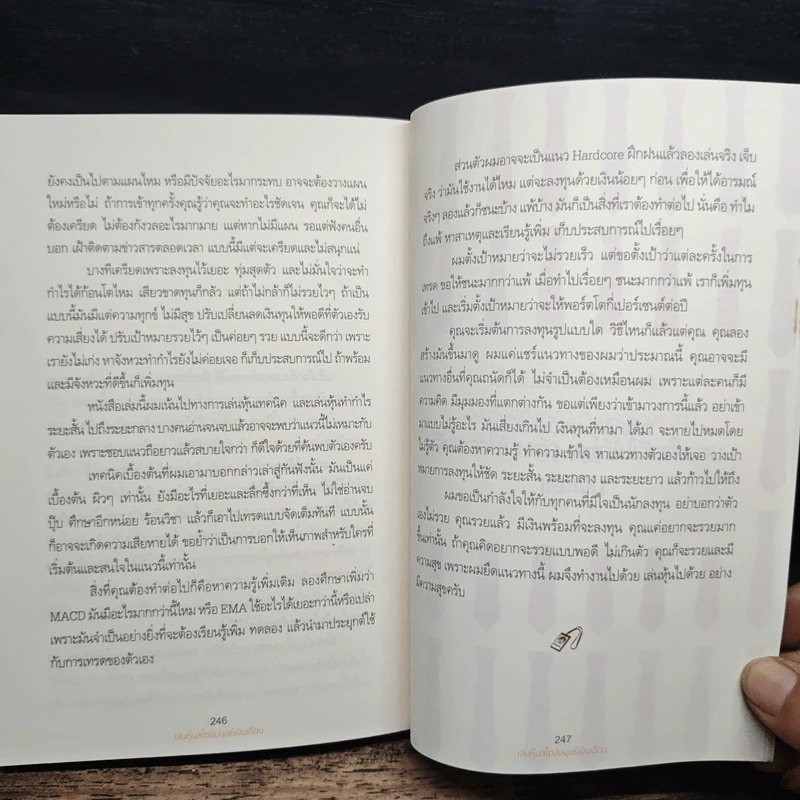 ยังคงเป็นไปตามแผนไหม หรือมีปัจจัยอะไรมากระทบ อาจจะต้องวางแผน
ใหม่หรือไม่ ถ้าการเข้าทุกครั้งคุณรู้ว่าคุณจะทำอะไรชัดเจน คุณก็จะได้ไม่
ต้องเครียด ไม่ต้องกังวลอะไรมากมาย แแต่หากไม่มีแผน รอแต่ฟังคนอื่น
บอก เฝ้าติดตามข่าวสารตลอดเวลา แบบนี้มีแต่จะเครียดและไม่สนุกแน่
บางทีเครียดเพราะลงทุนไว้เยอะ ทุ่มสุดตัว และไม่มั่นใจว่าจะทำ
กำไรได้ก้อนโตไหม เสียวขาดทุนก็กลัว แต่ถ้าไม่กล้าก็ไม่รวยไวๆ ถ้าเป็น
แบบนี้มันมีแต่ความทุกข์ ไม่มีสุข ปรับเปลี่ยนลดเงินทุนให้พอดีที่ตัวเองรับ
ความเสี่ยงได้ ปรับเป้าหมายรวยไว้ๆ เป็นค่อยๆ รวย แบบนี้จะดีกว่า เพราะ
เรายังไม่เก่ง หาจังหวะทำกำไรยังไม่ค่อยเจอ ก็เก็บประสบการณ์ไป ถ้าพร้อม
และมีจังหวะที่ดีขึ้นก็เพิ่มทุน
หนังสือเล่มนี้ผมเน้นไปทางการเล่นหุ้นเทคนิค และเล่นหุ้นทำกำไร
ระยะสั้น ไปถึงระยะกลาง บางคนอ่านจนจบแล้วอาจจะพบว่าแนวนี้ไม่เหมาะกับ
ตัวเอง เพราะชอบแนวถือยาวแล้วสบายใจกว่า ก็ดีใจด้วยที่ค้นพบตัวเองครับ
เทคนิคเบื้องต้นที่ผมเอามาบอกกล่าวเล่าสู่กันฟังนั้น มันเป็นแค่
เบื้องต้น ผิวๆ เท่านั้น ยังมีอะไรที่เยอะและลึกซึ้งกว่าที่เห็น ไม่ใช่อ่านจบ
ปุ๊บ ศึกษาอีกหน่อย ร้อนวิชา แล้วก็เอาไปเทรดแบบจัดเต็มทันที แบบนั้น
ก็อาจจะเกิดความเสียหายได้ ขอย้ำว่าเป็นการบอกให้เห็นภาพสำหรับใครที่
เริ่มต้นและสนใจในแนวนี้เท่านั้น
สิ่งที่คุณต้องทำต่อไปก็คือหาความรู้เพิ่มเติม ลองศึกษาเพิ่มว่า
MACD มันมีอะไรมากกว่านี้ไหม หรือ EMA ใช้อะไรได้เยอะกว่านี้หรือเปล่า
เพราะมันจำเป็นอย่างยิ่งที่จะต้องเรียนรู้เพิ่ม ทดลอง แล้วนำมาประยุกต์ใช้
กับการเทรดของตัวเอง
246
เล่นหุ้นสไตล์มนุษย์เงินเดือน
ส่วนตัวผมอาจจะเป็นแนว Hardcore ฝึกฝนแล้วลองเล่นจริง เจ็บ
จริง ว่ามันใช้งานได้ไหม แต่จะลงทุนด้วยเงินน้อยๆ ก่อน เพื่อให้ได้อารมณ์
จริงๆ ลองแล้วก็ชนะบ้าง แพ้บ้าง มันก็เป็นสิ่งที่เราต้องทำต่อไป นั่นคือ ทำไม
ถึงแพ้ หาสาเหตุและเรียนรู้เพิ่ม เก็บประสบการณ์ไปเรื่อยๆ
ผมตั้งเป้าหมายว่าจะไม่รวยเร็ว แต่ขอตั้งเป้าว่าแต่ละครั้งในการ
เทรด ขอให้ชนะมากกว่าแพ้ เมื่อทำไปเรื่อยๆ ชนะมากกว่าแพ้ เราก็เพิ่มทุน
เข้าไป และเริ่มตั้งเป้าหมายว่าจะให้พอร์ตโตกี่เปอร์เซนต์ต่อปี
คุณจะเริ่มต้นการลงทุนรูปแบบใด วิธีไหนก็แล้วแต่คุณ คุณลอง
สร้างมันขึ้นมาดู ผมแค่แชร์แนวทางของผมว่าประมาณนี้ คุณอาจจะมี
แนวทางอื่นที่คุณถนัดก็ได้ ไม่จำเป็นต้องเหมือนผม เพราะแต่ละคนก็มี
ความคิด มีมุมมองที่แตกต่างกัน ขอแต่เพียงว่าเข้ามาวงการนี้แล้ว อย่าเข้า
มาแบบไม่รู้อะไร มันเสี่ยงเกินไป เงินทุนที่หามา ได้มา จะหายไปหมดโดย
ไม่รู้ตัว คุณต้องหาความรู้ ทำความเข้าใจ หาแนวทางตัวเองให้เจอ วางเป้า
หมายการลงทุนให้ชัด ระยะสั้น ระยะกลาง และระยะยาว แล้วก้าวไปให้ถึง
ผมขอเป็นกำลังใจให้กับทุกคนที่มีใจเป็นนักลงทุน อย่าบอกว่าตัว
เองไม่รวย คุณรวยแล้ว มีเงินพร้อมที่จะลงทุน คุณแค่อยากจะรวยมาก
ขึ้นเท่านั้น ถ้าคุณคิดอยากจะรวยแบบพอดี ไม่เกินตัว คุณก็จะรวยและมี
ความสุข เพราะผมยึดแนวทางนี้ ผมจึงทำงานไปด้วย เล่นหุ้นไปด้วย อย่าง
มีความสุขครับ
247
เล่นหุ้นสไตล์มนุษย์เงินเดือน